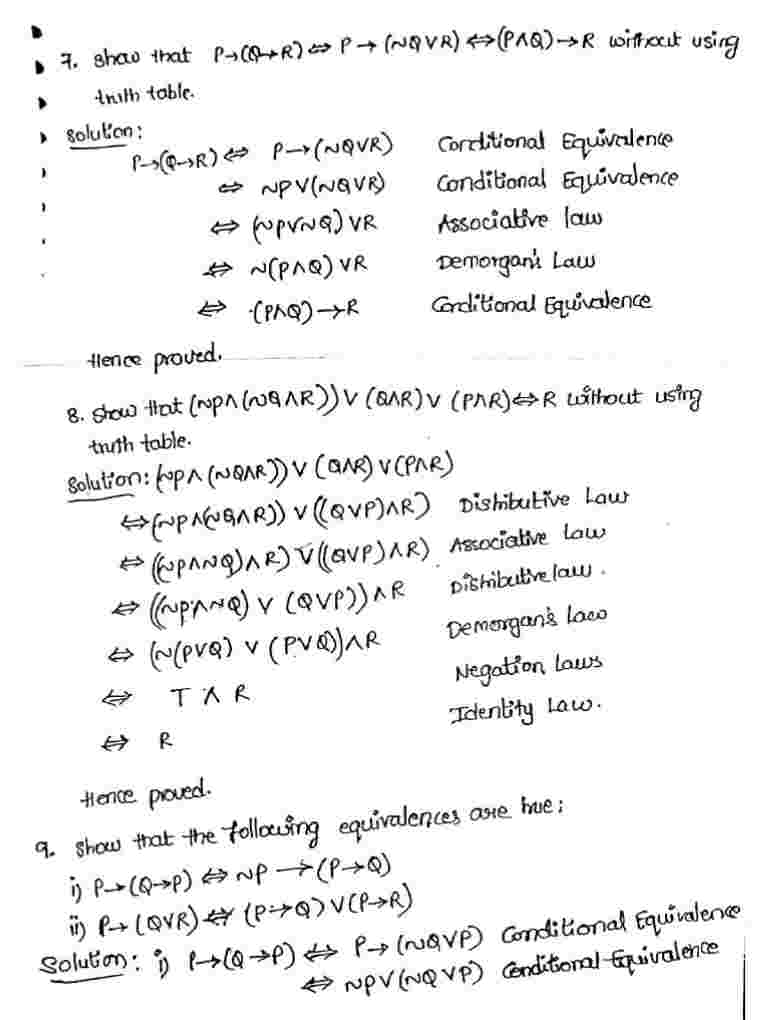 7. Show that P→(Q→R) ⇔ P → (~Q∨R) ⇔ (P∧Q) → R without using
truth table.
Solution:
P→(Q→R) ⇔ P→(~Q∨R) Conditional Equivalence
⇔ ~P∨(~Q∨R) Conditional Equivalence
⇔ (~P∨~Q)∨R Associative law
⇔ ~(P∧Q)∨R Demorgan's Law
⇔ (P∧Q)→R Conditional Equivalence
Hence proved.
8. Show that (~P∧(~Q∧R))∨(Q∧R)∨(P∧R)⇔R without using
truth table.
Solution: (~P∧(~Q∧R))∨(Q∧R)∨(P∧R)
⇔(~P∧(~Q∧R))∨((Q∨P)∧R) Distributive Law
⇔ ((~P∧~Q)∧R)∨((Q∨P)∧R) Associative Law
⇔ ((~P∧~Q)∨(Q∨P))∧R Distributive law.
⇔ (~(P∨Q)∨(P∨Q))∧R Demorgan's Law
⇔ T∧R Negation Laws
⇔ R Identity Law.
Hence proved.
9. Show that the following equivalences are true:
i) P→(Q→P) ⇔ ~P→(P→Q)
ii) P→(Q∨R) ⇔ (P→Q)∨(P→R)
Solution: i) P→(Q→P) ⇔ P→(~Q∨P) Conditional Equivalence
⇔ ~P∨(~Q∨P) Conditional Equivalence